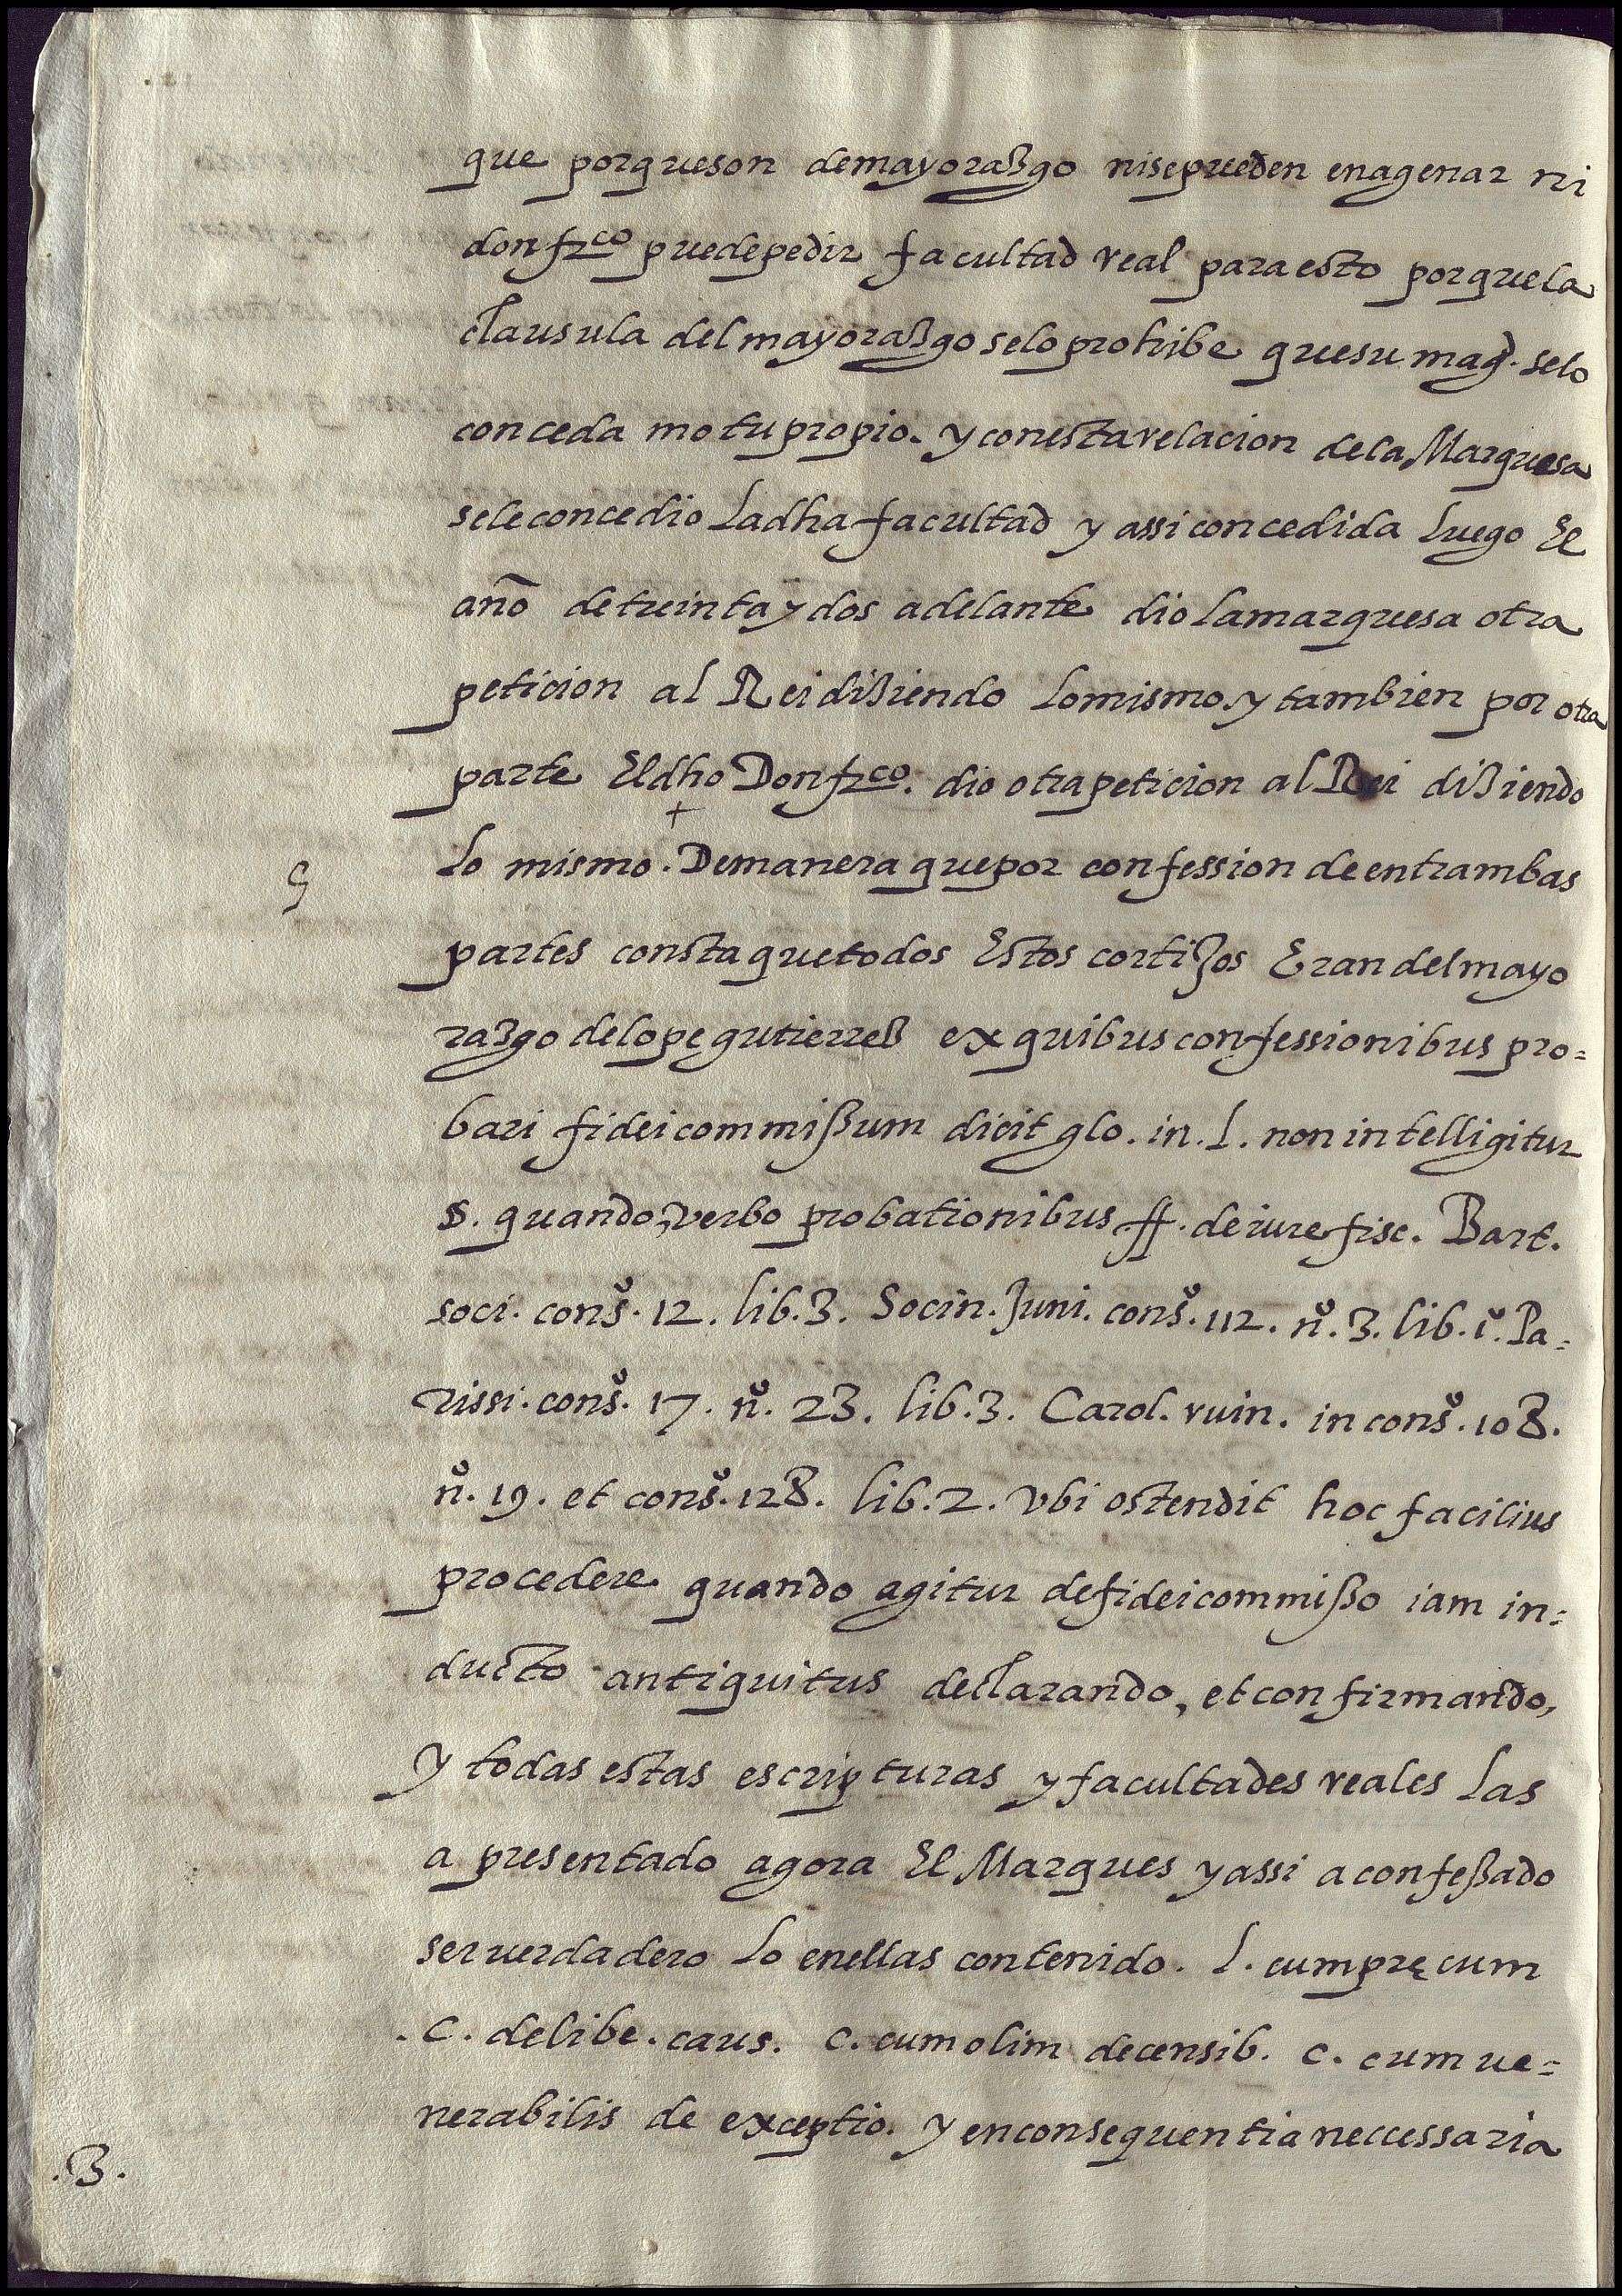 que porque son de mayorazgo ni se pueden enagenar ni
don frco puede pedir facultad real para esto porque la
clausula del mayorazgo se lo prohibe que su magd. se lo
conceda motu propio. y con esta relacion de la Marquesa
se le concedio La dha facultad y assi concedida Luego El
año de treinta y dos adelante dio La marquesa otra
peticion al Rei diziendo Lo mismo. y tambien por otra
parte El dho Don frco. dio otra peticion al Rei diziendo
+
Lo mismo. De manera que por confession de entrambas
partes consta que todos Estos cortizos Eran del mayo
razgo de lope gutierrez ex quibus confessionibus pro=
bari fideicommißum dicit glo. in. l. non intelligitur
§. quando, verbo probationibus ff. de iure fisc. Bart.
soci. consº. 12. lib. 3. Socin. Juni. consº. 112. nº. 3. lib. 1º. Pa=
rissi. consº. 17. nº. 23. lib. 3. Carol. ruin. in consº. 108.
nº. 19. et consº. 128. lib. 2. Vbi ostendit hoc facilius
procedere quando agitur de fideicommißo iam in=
ducto antiquitus declarando, et confirmando,
y todas estas escripturas y facultades reales Las
a presentado agora El Marques y assi a confeßado
ser verdadero Lo en ellas contenido. l. cum pręcum
.C. de libe. caus. c. cum olim de censib. c. cum ve=
nerabilis de exceptio. y en consequentia neccessaria
.B.